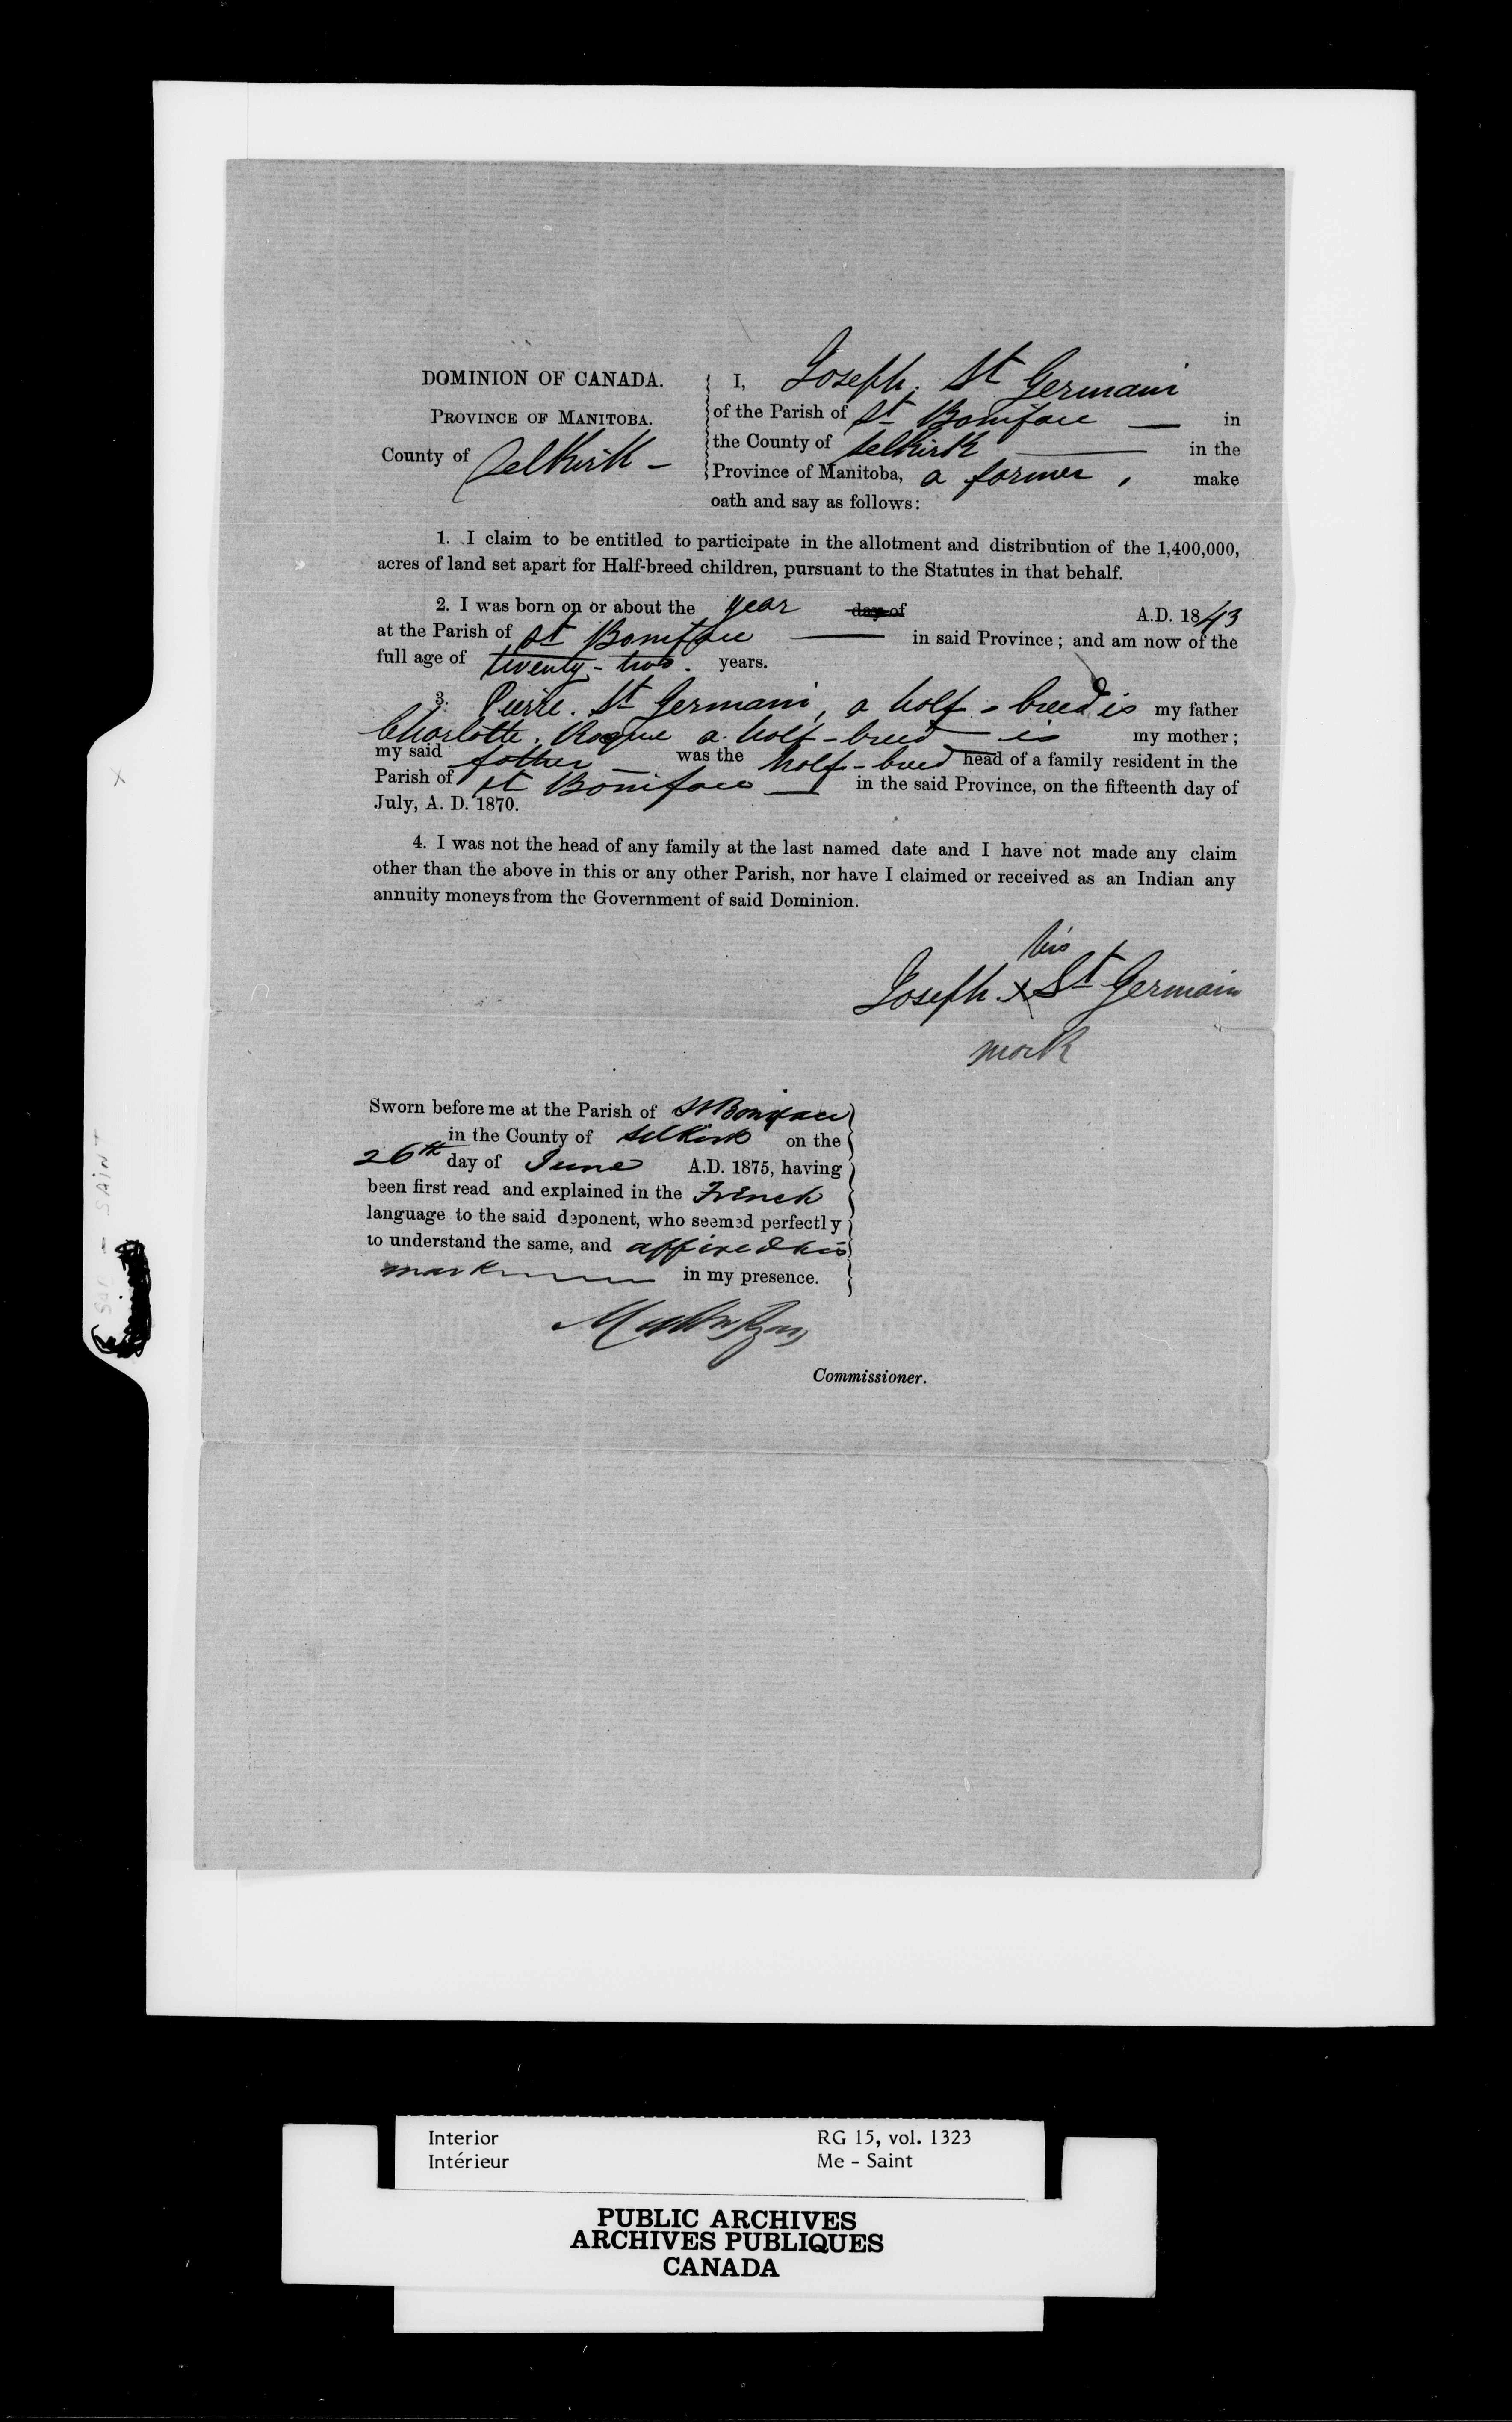 DOMINION OF CANADA.
PROVINCE OF MANITOBA.
County of Selkirk -
I, Joseph. St Germain
of the Parish of St Boniface — in
the County of Selkirk — in the
Province of Manitoba, a farmer, make
oath and say as follows:
1. I claim to be entitled to participate in the allotment and distribution of the 1,400,000,
acres of land set apart for Half-breed children, pursuant to the Statutes in that behalf.
2. I was born on or about the year day of A.D. 1843
at the Parish of St Boniface — in said Province; and am now of the
full age of twenty-two. years.
3. Pierre. St Germain, a half-breed is my father
Charlotte. Roque a half-breed — is my mother;
my said father — was the half-breed head of a family resident in the
Parish of St Boniface — in the said Province, on the fifteenth day of
July, A. D. 1870.
4. I was not the head of any family at the last named date and I have not made any claim
other than the above in this or any other Parish, nor have I claimed or received as an Indian any
annuity moneys from the Government of said Dominion.
his
Joseph. x St Germain
mark
Sworn before me at the Parish of St Boniface
in the County of Selkirk on the
26th day of June A.D. 1875, having
been first read and explained in the French
language to the said deponent, who seemed perfectly
to understand the same, and affixed his
mark in my presence.
Commissioner.
SAINT
Interior RG 15, vol. 1323
Intérieur Me - Saint
PUBLIC ARCHIVES
ARCHIVES PUBLIQUES
CANADA